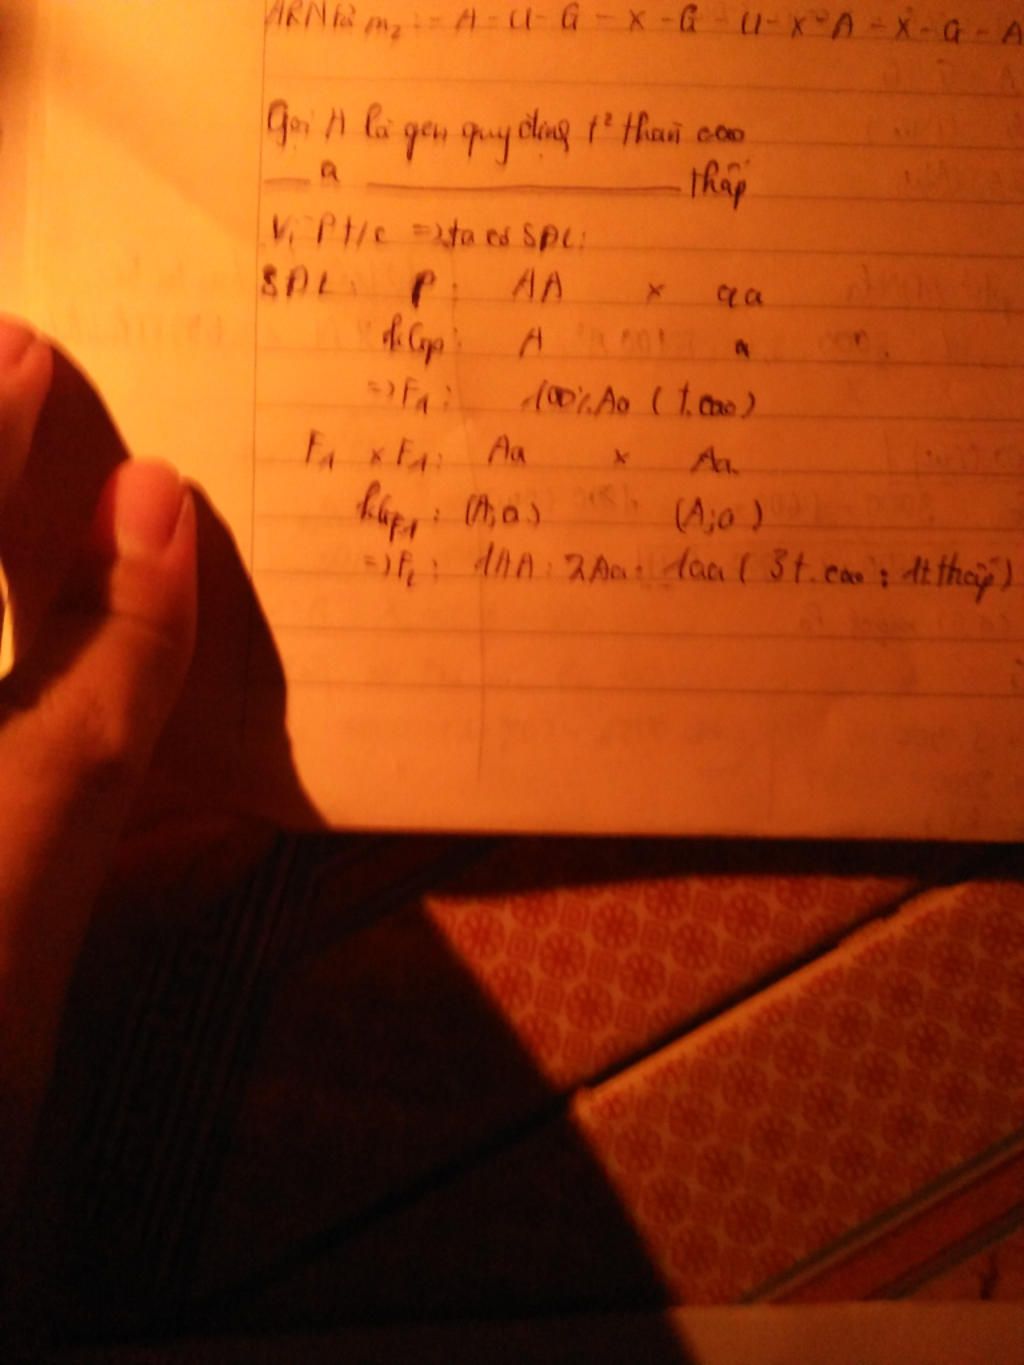 ARN từ m₂ : - A - U - G - X - G - U - X - A - X - G - A
Gọi A là gen quy định t² thân cao
___ a ___ thấp
Vì P t/c => ta có SĐL:
SĐL: P: AA x aa
đk Gp: A a
=> F1: 100% Aa (t.cao)
F1 x F1: Aa x Aa
đk GF1: (A;a) (A;a)
=> F2: 1AA : 2Aa : 1aa ( 3t.cao : 1t.thấp)